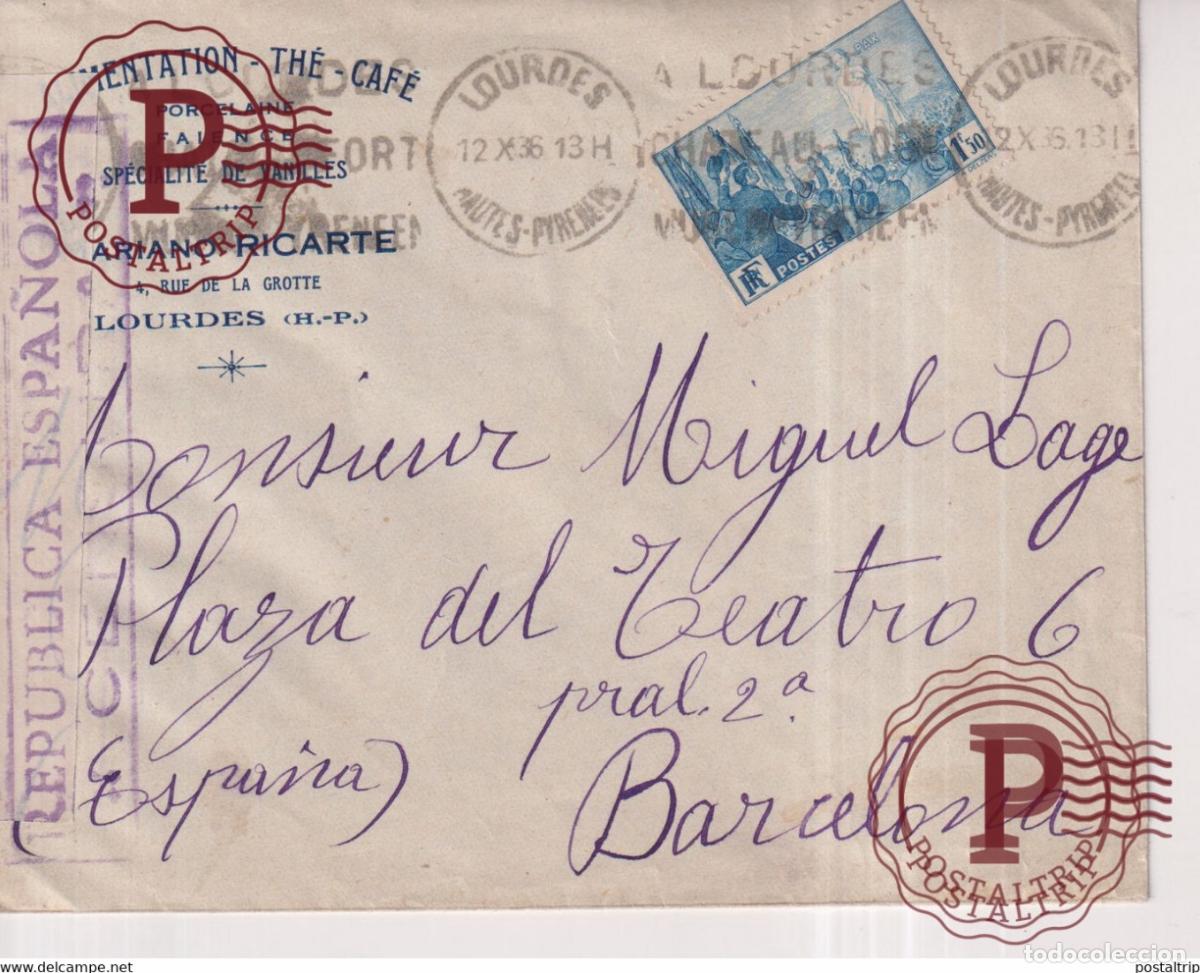 MENTATION - THÉ - CAFÉ
PORCELAINE
FAIENCE
SPÉCIALITÉ DE VANILLES
ARIANO RICARTE
4, RUE DE LA GROTTE
LOURDES (H.-P.)
LOURDES
12 X 36 13 H
HAUTES-PYRENEES
A LOURDES
CHATEAU-FORT
LOURDES
12 X 36 13 H
HAUTES-PYRENEES
PAX
1F50
POSTES
RF
REPUBLICA ESPAÑOLA
Monsieur Miguel Lage
Plaza del Teatro 6
pral. 2ª
(España) Barcelona
P
POSTALTRIP
P
POSTALTRIP
POSTALTRIP
todocoleccion
www.delcampe.net
postaltrip